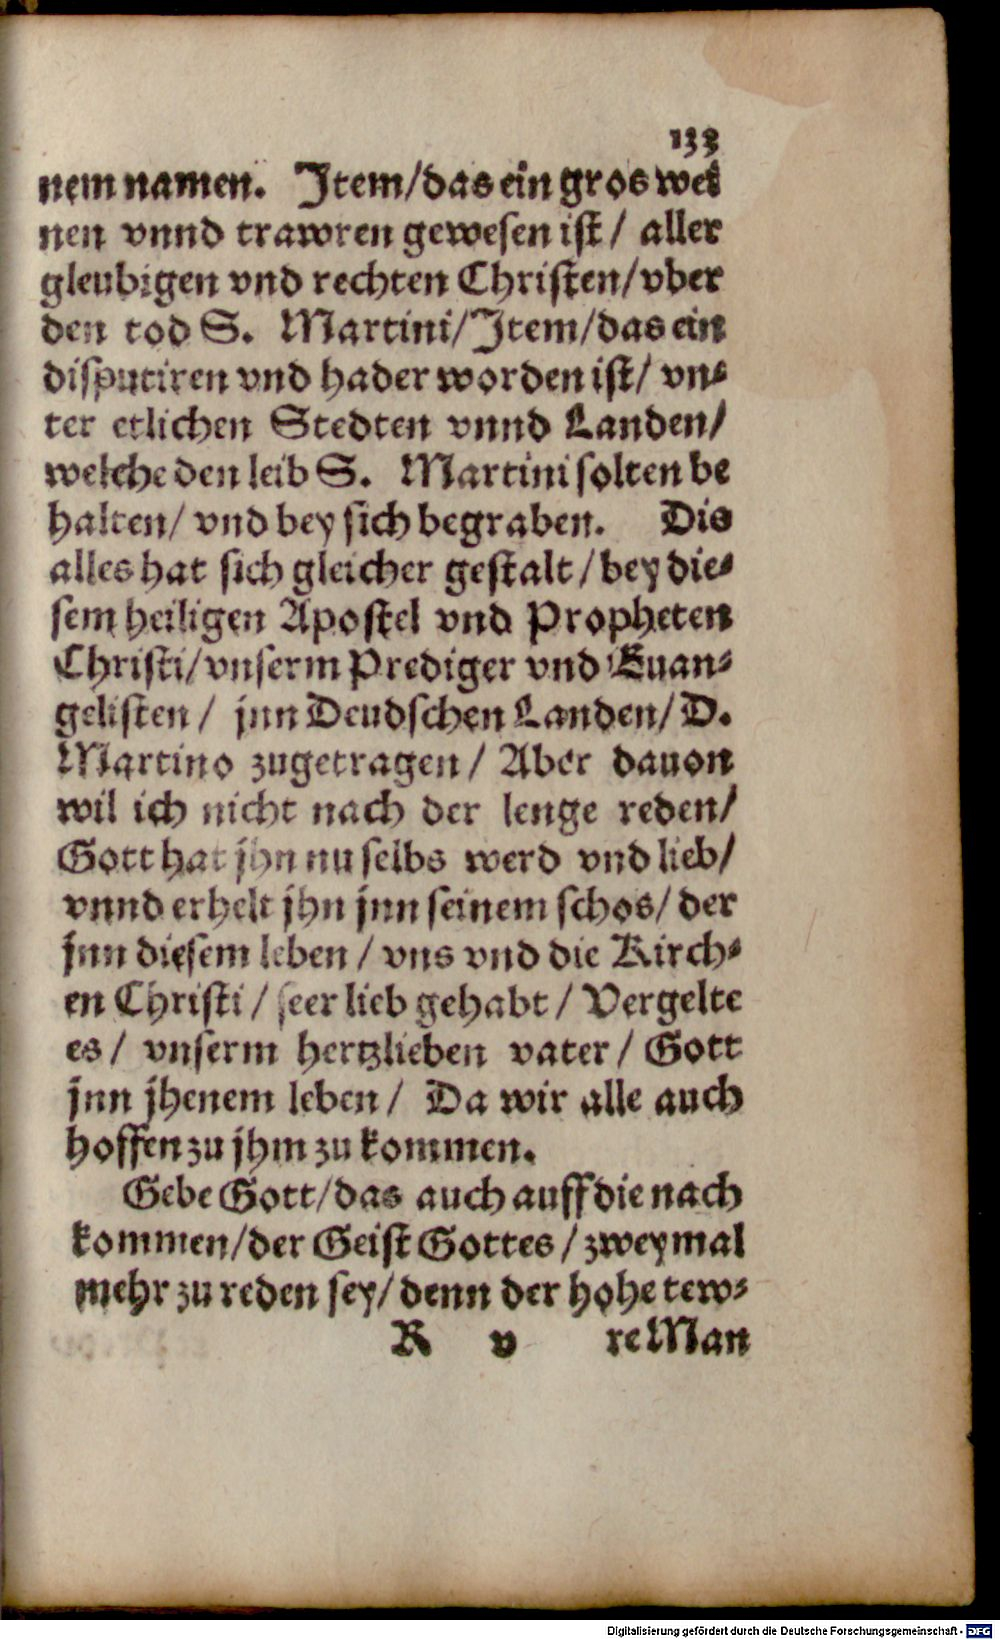 133
nem namen. Item/das ein gros wei
nen vnnd trawren gewesen ist/ aller
gleubigen vnd rechten Christen/vber
den tod S. Martini/Item/das ein
disputiren vnd hader worden ist/ vn-
ter etlichen Stedten vnnd Landen/
welche den leib S. Martini solten be
halten/ vnd bey sich begraben. Dis
alles hat sich gleicher gestalt/bey die-
sem heiligen Apostel vnd Propheten
Christi/vnserm Prediger vnd Euan-
gelisten/ jnn Deudschen Landen/D.
Martino zugetragen/ Aber dauon
wil ich nicht nach der lenge reden/
Gott hat jhn nu selbs werd vnd lieb/
vnnd erhelt jhn jnn seinem schos/ der
jnn diesem leben/ vns vnd die Kirch-
en Christi/ seer lieb gehabt/ Vergelte
es/ vnserm hertzlieben vater/ Gott
jnn jhenem leben/ Da wir alle auch
hoffen zu jhm zu kommen.
Gebe Gott/das auch auff die nach
kommen/der Geist Gottes/ zweymal
mehr zu reden sey/denn der hohe tew-
R v re Man
Digitalisierung gefördert durch die Deutsche Forschungsgemeinschaft - DFG